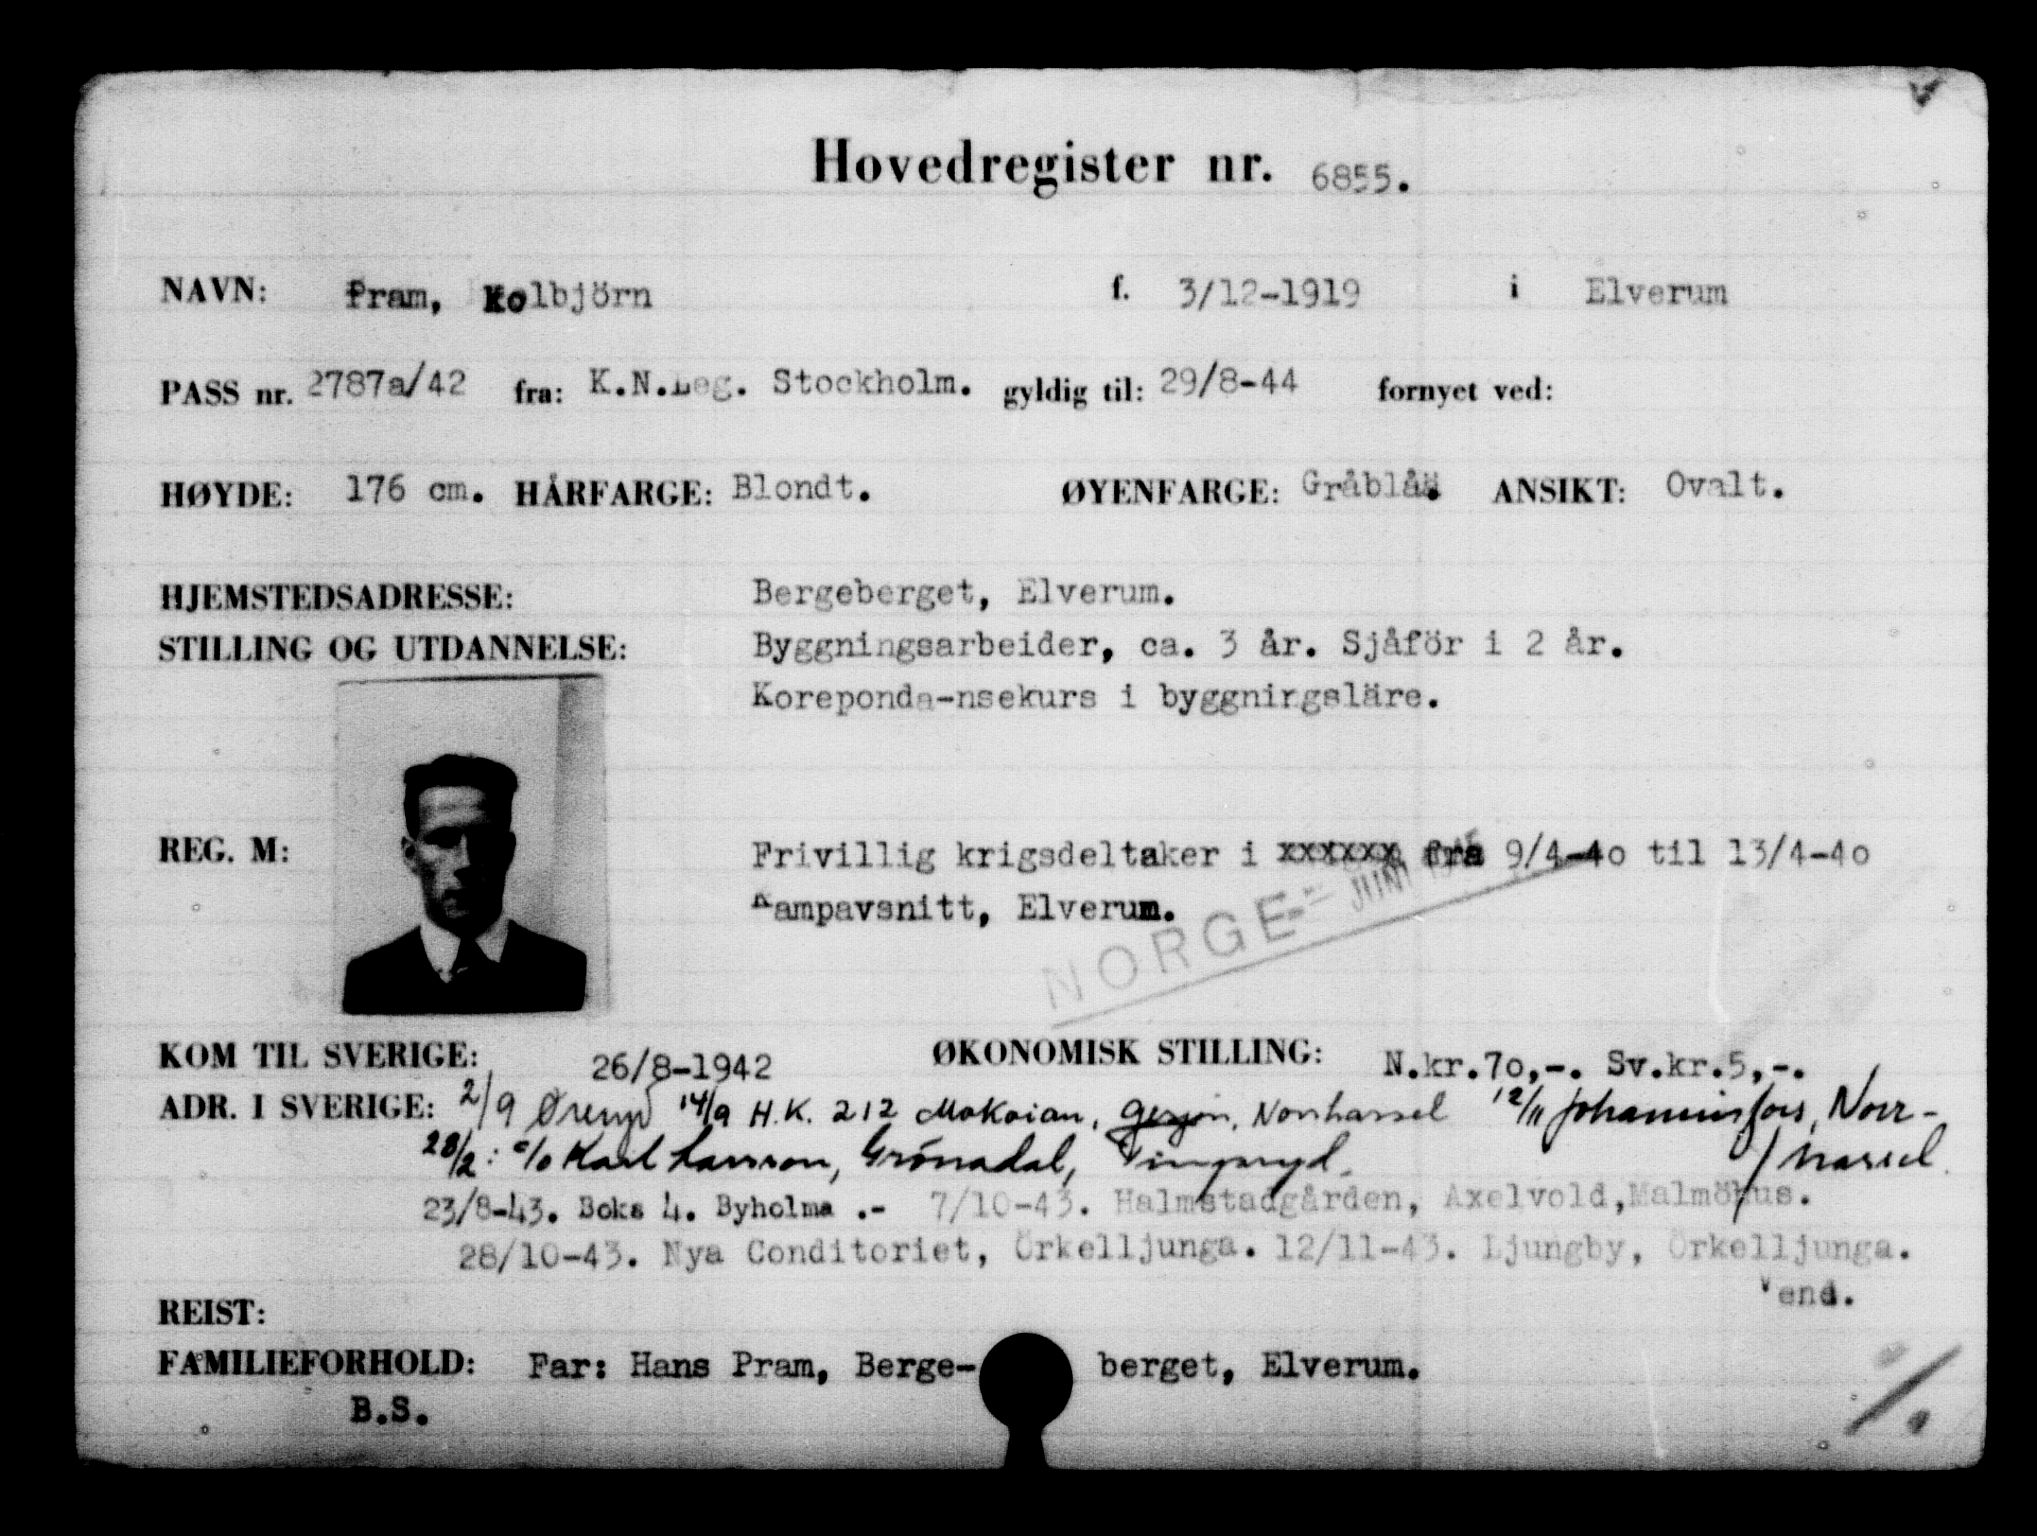 Hovedregister nr. 6855.
NAVN: Pram, Kolbjörn f. 3/12-1919 i Elverum
PASS nr. 2787a/42 fra: K.N.Leg. Stockholm. gyldig til: 29/8-44 fornyet ved:
HØYDE: 176 cm. HÅRFARGE: Blondt. ØYENFARGE: Gråblå. ANSIKT: Ovalt.
HJEMSTEDSADRESSE: Bergeberget, Elverum.
STILLING OG UTDANNELSE: Byggningsarbeider, ca. 3 år. Sjåför i 2 år.
Koreponda-nsekurs i byggningsläre.
REG. M: Frivillig krigsdeltaker i xxxxxx fra 9/4-40 til 13/4-40
Kampavsnitt, Elverum.
NORGE JUNI
KOM TIL SVERIGE: 26/8-1942 ØKONOMISK STILLING: N.kr.70,-. Sv.kr.5,-.
ADR. I SVERIGE: 2/9 Öreryd 14/9 H.K. 212 Norrhassel 12/11 Johannisfors, Norr-
/hassel.
28/2: c/o Karl Larsson, Grönadal, Tingsryd.
23/8-43. Boks 4. Byholma .- 7/10-43. Halmstadgården, Axelvold,Malmöhus.
28/10-43. Nya Conditoriet, Örkelljunga. 12/11-43. Ljungby, Örkelljunga.
Vend.
REIST:
FAMILIEFORHOLD: Far: Hans Pram, Berge- berget, Elverum.
B.S.